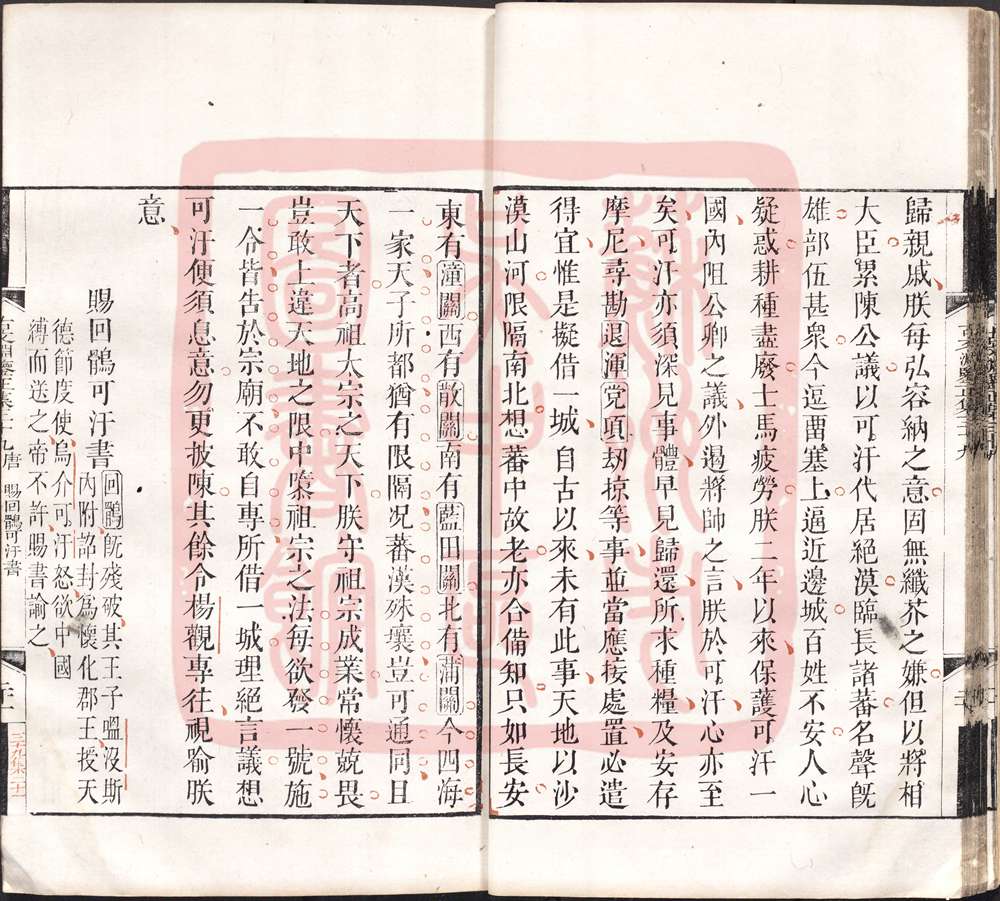 歸親戚朕每弘容納之意固無纖芥之嫌但以將相
大臣累陳公議以可汗代居絕漠臨長諸蕃名聲旣
雄部伍甚衆今逗留塞上逼近邊城百姓不安人心
疑惑耕種盡廢士馬疲勞朕二年以來保護可汗一
國內阻公卿之議外遏將帥之言朕於可汗心亦至
矣可汗亦須深見事體早見歸還所求種糧及安存
摩尼尋勘退渾党項刼掠等事並當應接處置必遣
得宜惟是擬借一城自古以來未有此事天地以沙
漠山河限隔南北想蕃中故老亦合備知只如長安
東有潼關西有散關南有藍田關北有蒲關今四海
一家天子所都猶有限隔況蕃漢殊壤豈可通同且
天下者高祖太宗之天下朕守祖宗成業常懷兢畏
豈敢上違天地之限中隳祖宗之法每欲發一號施
一令皆告於宗廟不敢自專所借一城理絕言議想
可汗便須息意勿更披陳其餘令楊觀專往視喻朕
意
賜回鶻可汗書
回鶻旣殘破其王子嗢沒斯
內附詔封爲懷化郡王授天
德節度使烏介可汗怒欲中國
縛而送之帝不許賜書諭之
唐 賜回鶻可汗書